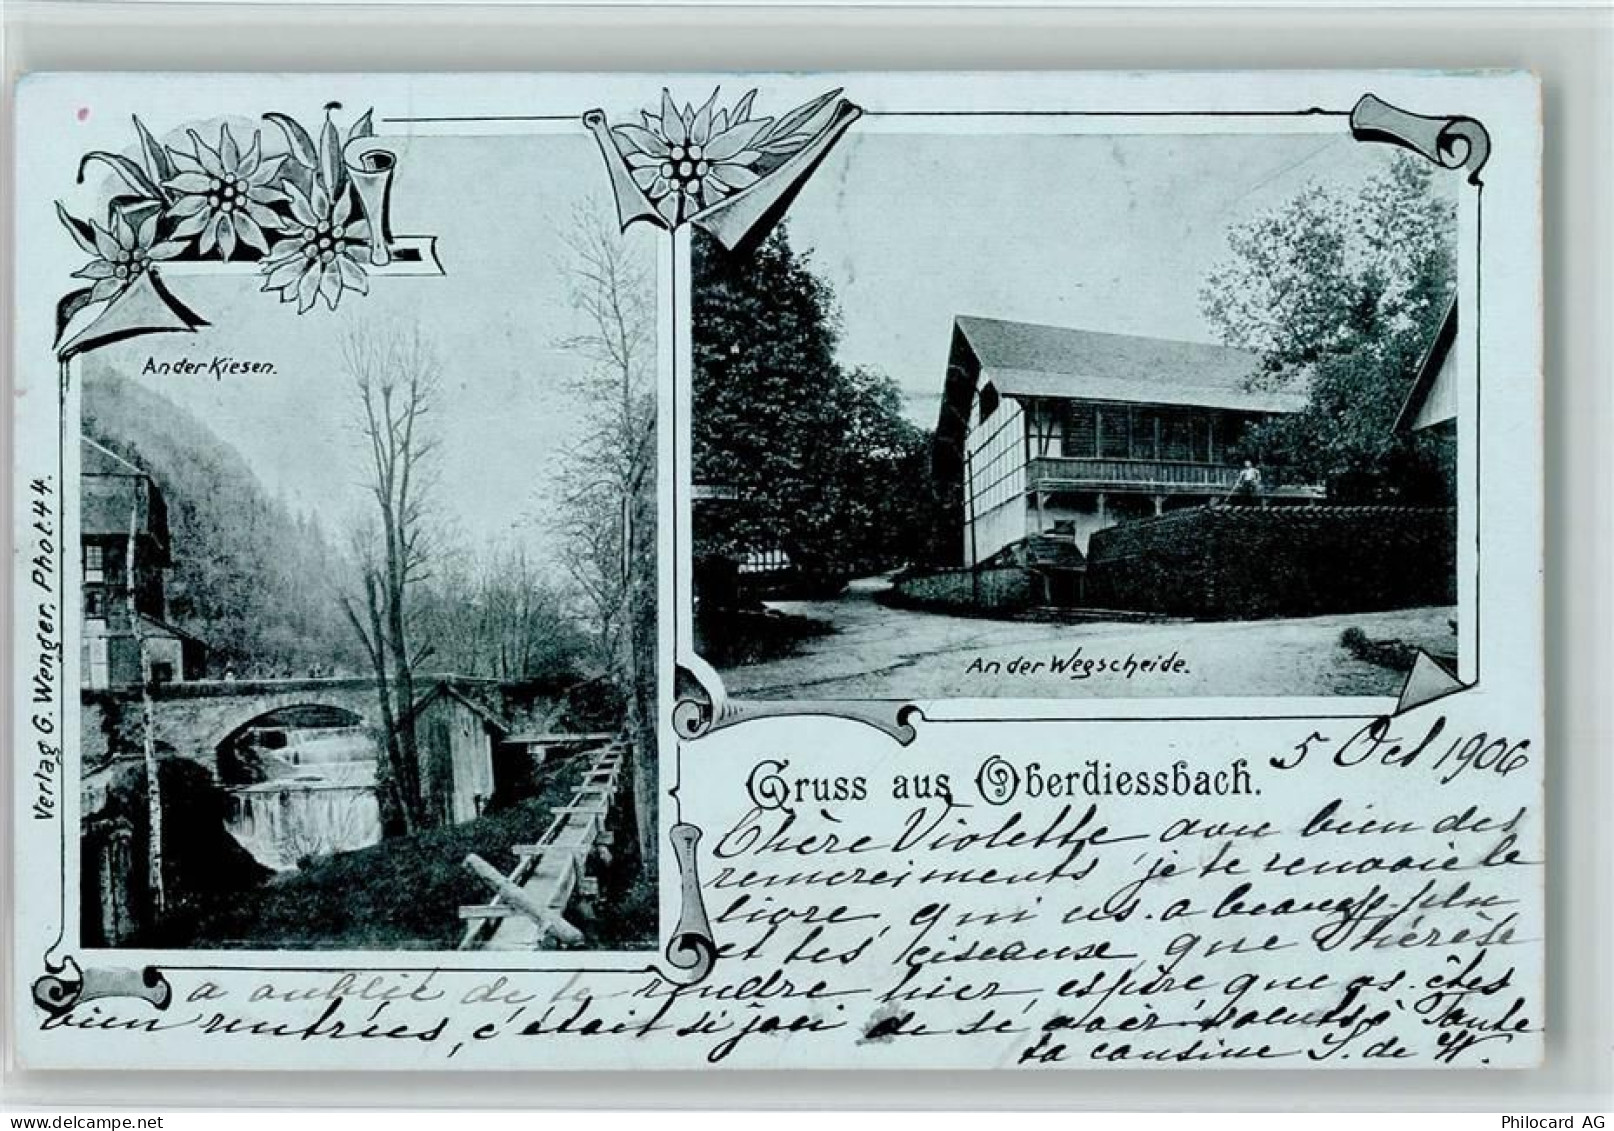 An der Kiesen.
An der Wegscheide.
Verlag G. Wenger, Phot. 44.
Gruss aus Oberdiessbach.
5 Oct 1906
Chère Violette avec bien des
remerciements je te renvoie le
livre, qui a beaucoup plu
et tes ciseaux que Thérèse
a oublié de te rendre hier, espère que êtes
bien rentrées, c'était si joli de se
ta cousine S. de W.
Philocard AG